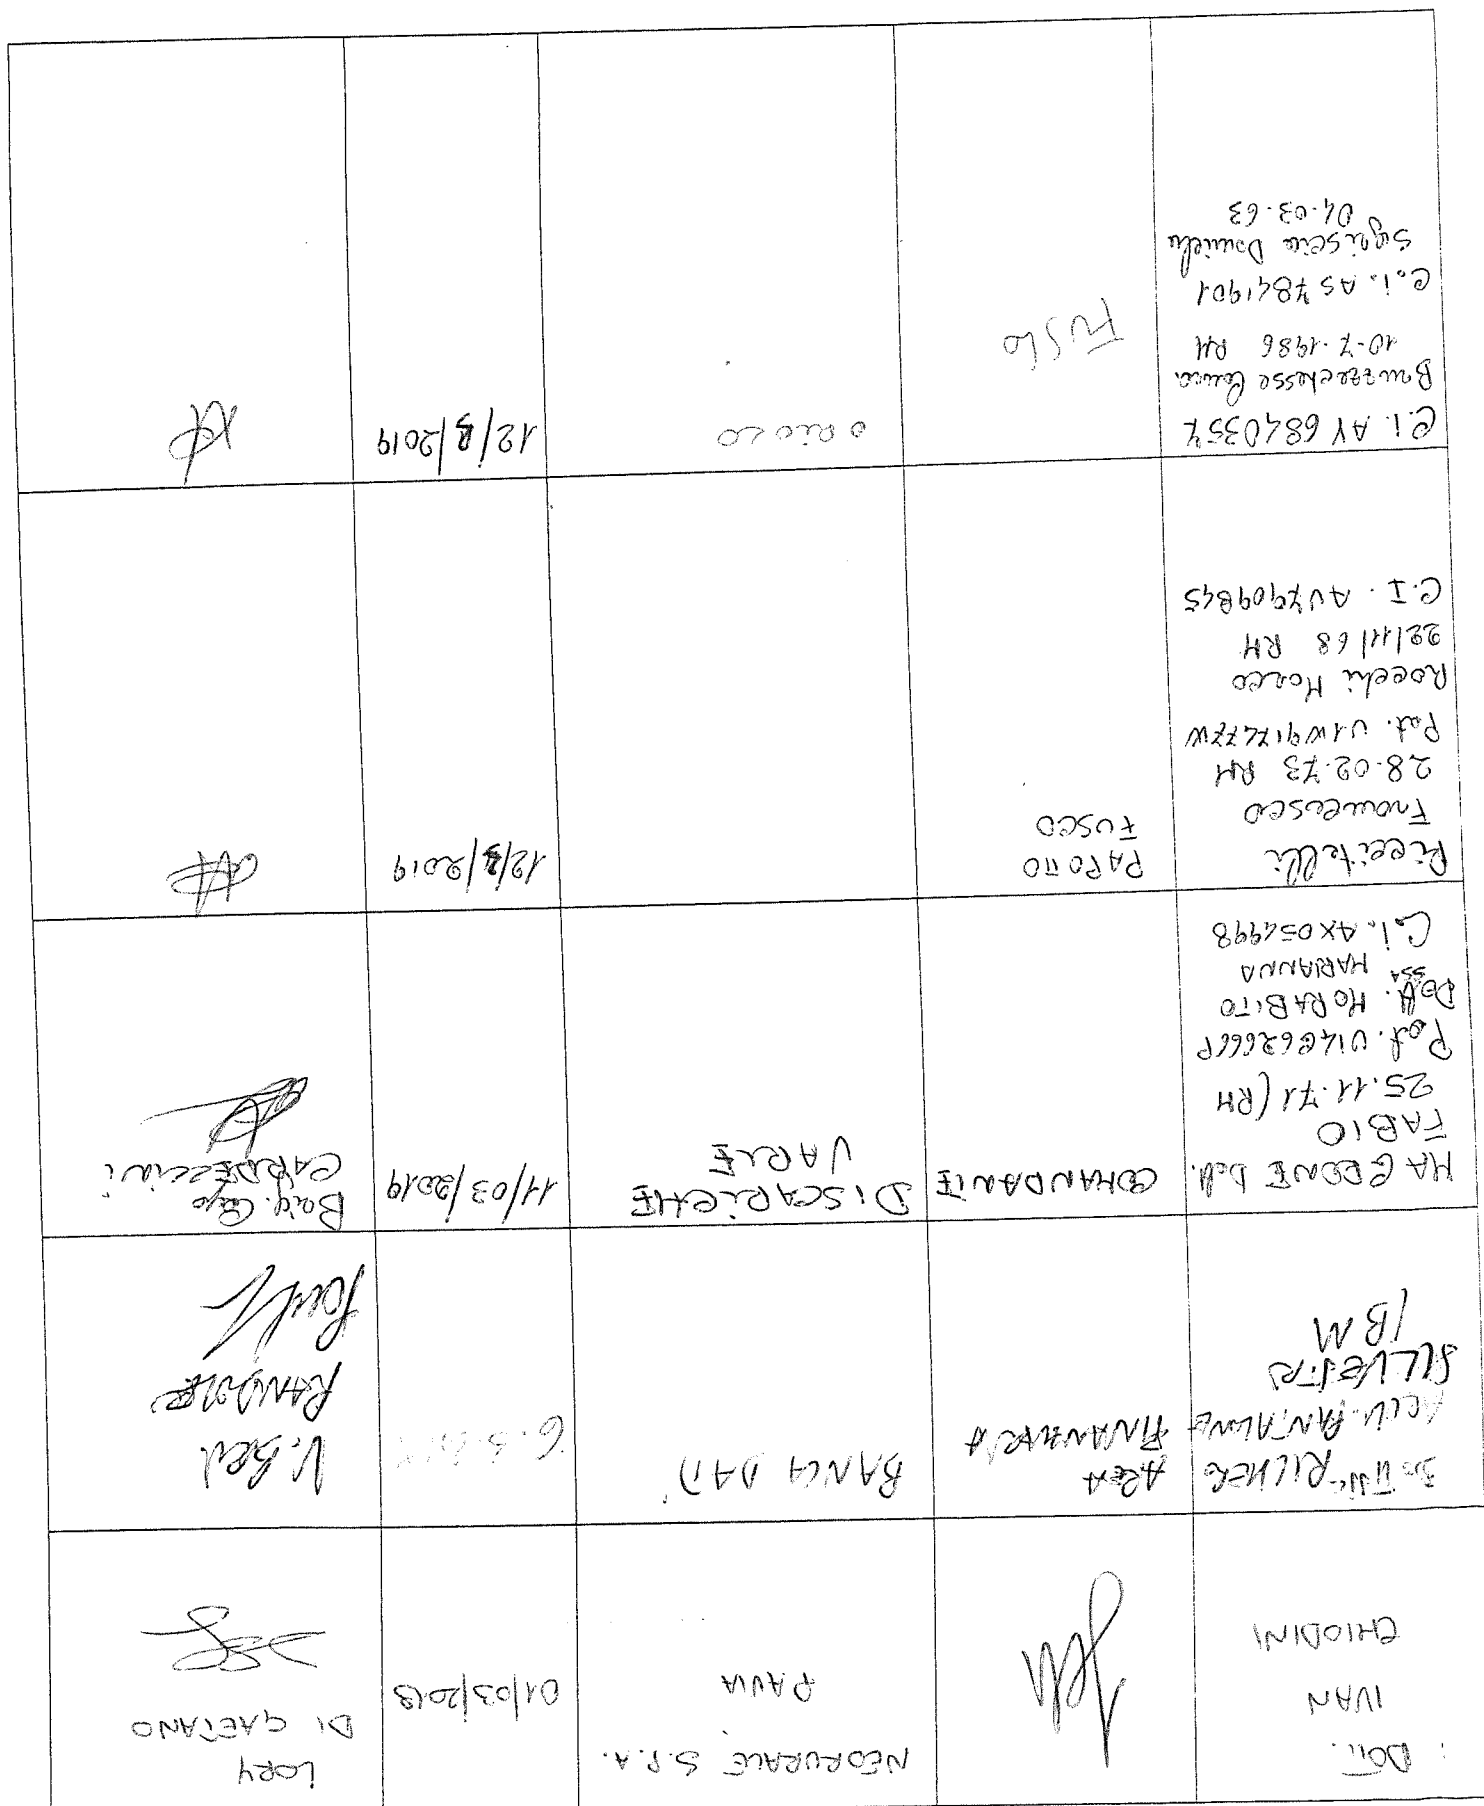 DOTT.
IVAN
CHIODINI
NEORURALE S.P.A.
PAVIA
01/03/2019
LORY
DI GAETANO
RICHER
AREA
PANTALONE
FINANZIARIA
SILVESTRI
IBM
BANCA DATI
V. BRIG.
MACRONE Dott.
FABIO
25.11.71 (RM
Pat. U14662666P
Dott.ssa MORABITO
MARIANNA
C.i. AX054998
COMANDANTE
DISCARICHE
VARIE
11/03/2019
Brig. Capo
CARDECCIANI
Riccitelli
Francesco
28.02.73 RM
Pat. U1W917477W
Rocchi Marco
22/11/68 RM
C.I. AV7909845
PAPOTTO
FUSCO
12/3/2019
C.I. AY6840357
Bruzzechesse Laura
10-7-1986 RM
C.i. AS7841901
Sgriscia Daniela
04.03.63
FUSCO
12/3/2019